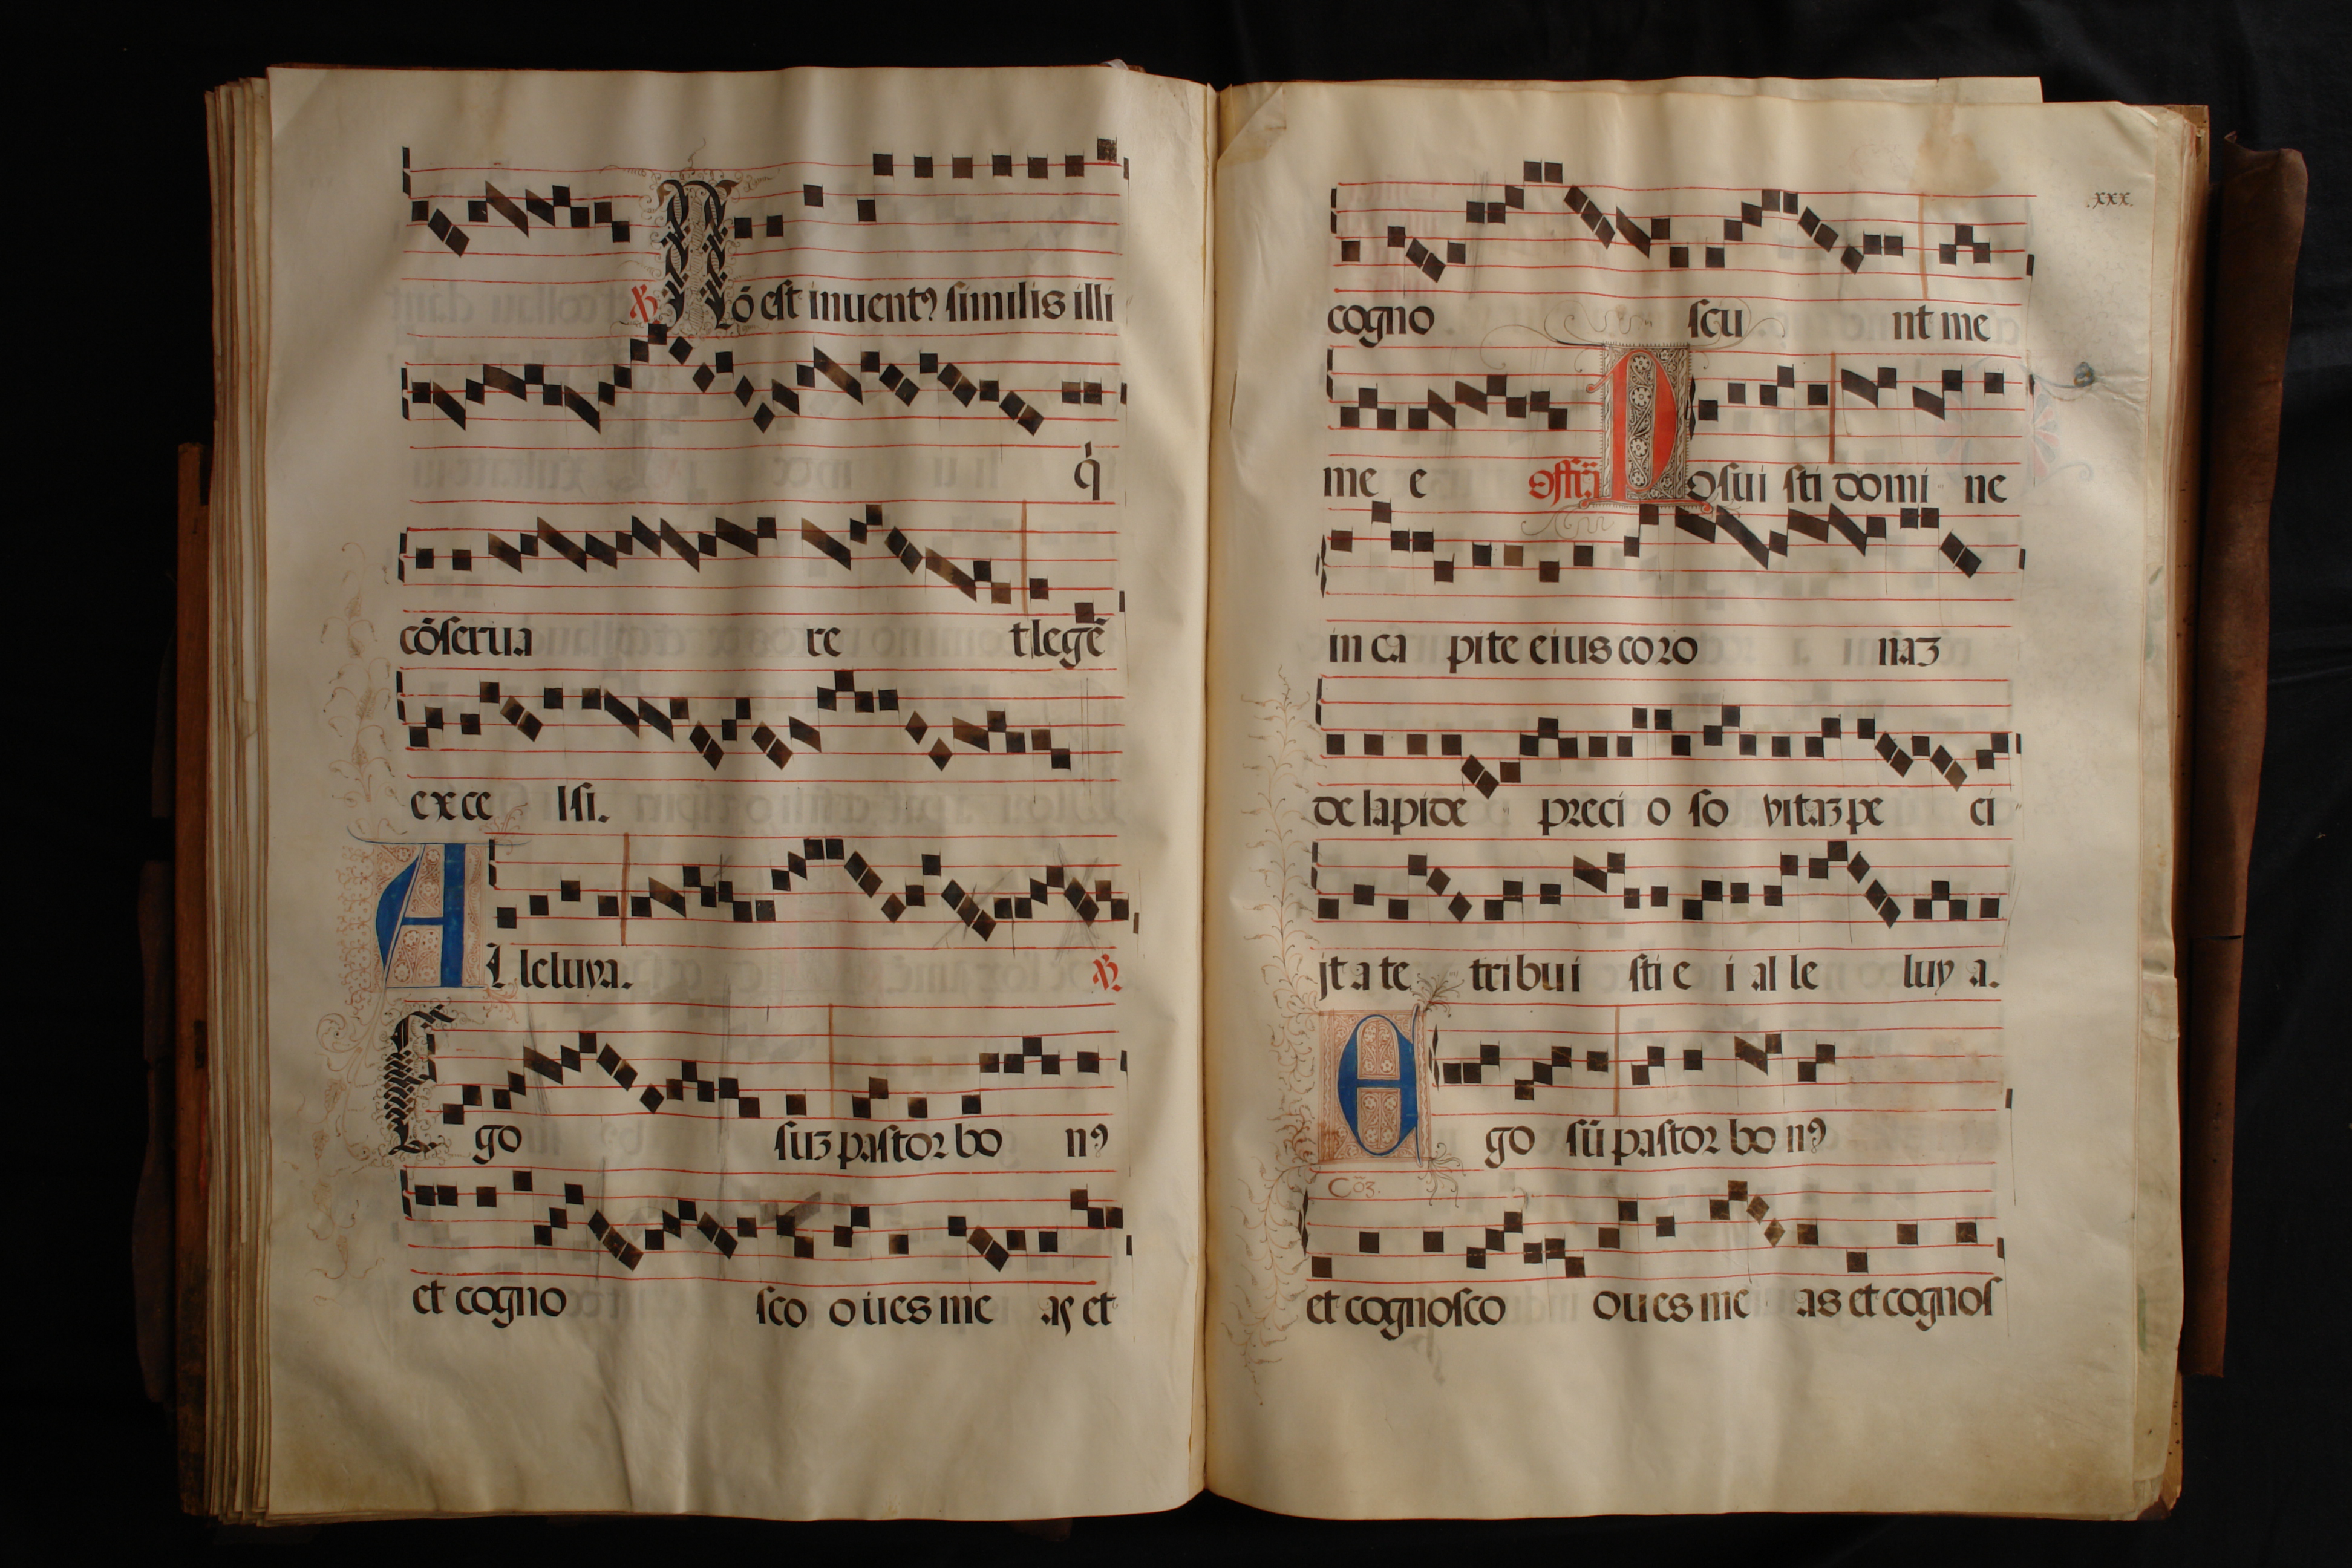 ℣ Nō est inuentꝰ similis illi
q̇
cōserua re t legē
exce lsi.
Alleluya. ℣.
Ego suꝫ pastor bo nꝰ
et cogno sco oues me as et
.xxx.
cogno scu nt me
me e Offā Posui sti domi ne
in ca pite eius coro naꝫ
de lapide preci o so vitaꝫ pe ci
jt a te tribui sti e i al le luy a.
Ego sū pastor bo nꝰ
Cōꝫ.
et cognosco oues me as et cognos